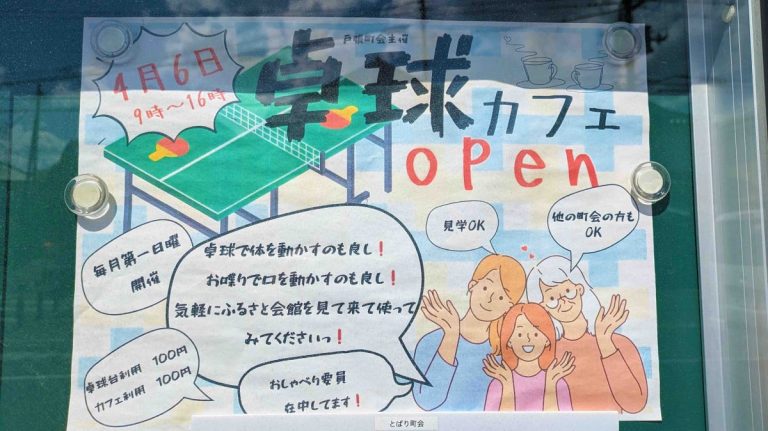 戸張町会主催
4月6日
9時～16時
卓球カフェ
open
見学OK
他の町会の方も
OK
毎月第一日曜
開催
卓球で体を動かすのも良し！
お喋りで口を動かすのも良し！
気軽にふるさと会館を見て来て使って
みてくださいっ！
卓球台利用 100円
カフェ利用 100円
おしゃべり委員
在中してます！
とばり町会